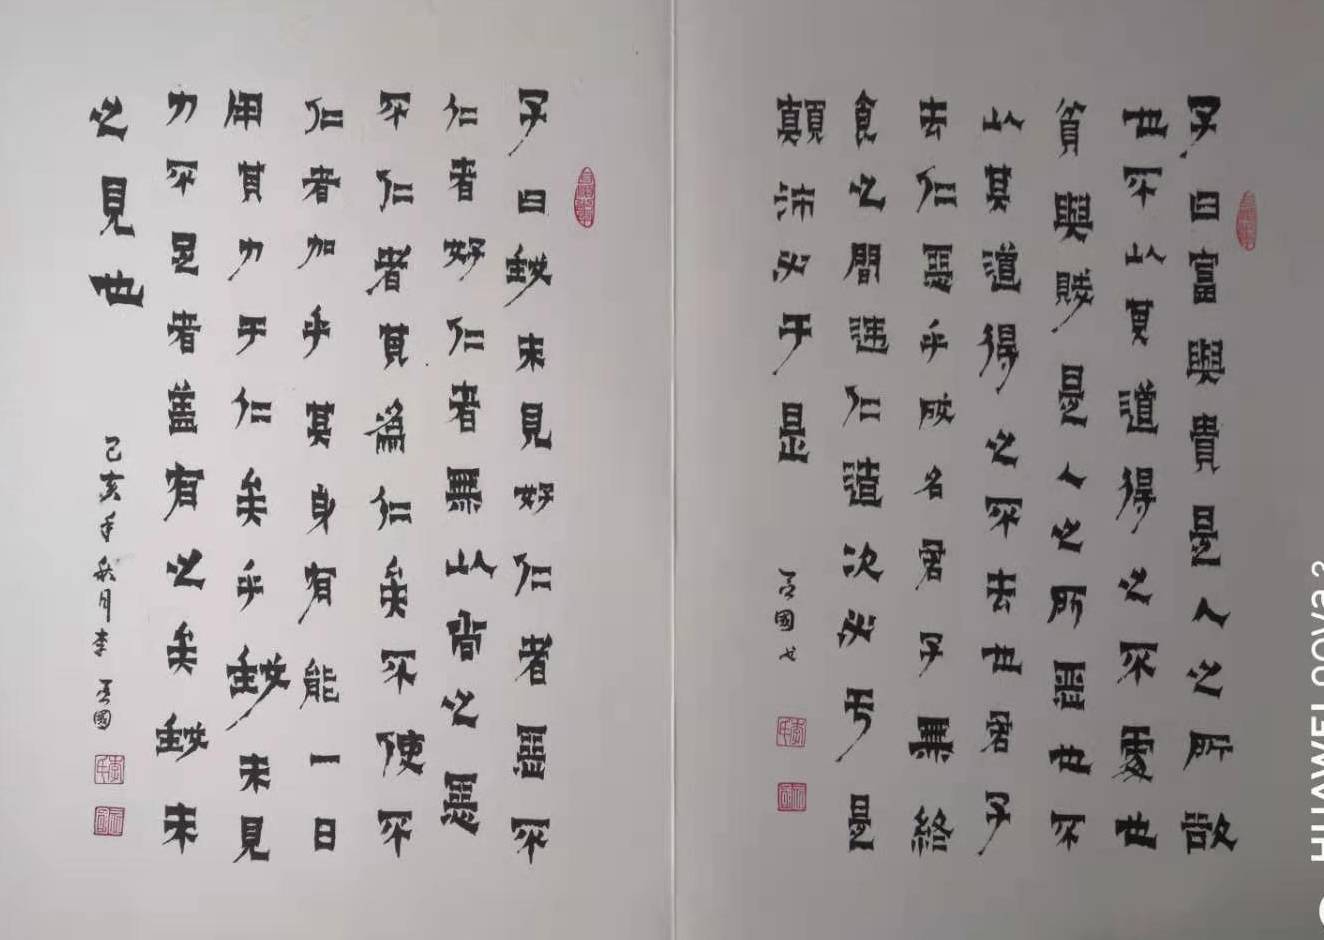 子曰富與貴是人之所欲
也不以其道得之不處也
貧與賤是人之所惡也不
以其道得之不去也君子
去仁惡乎成名君子無終
食之間違仁造次必于是
顛沛必于是
國书
子曰我未見好仁者惡不
仁者好仁者無以尚之惡
不仁者其為仁矣不使不
仁者加乎其身有能一日
用其力于仁矣乎我未見
力不足者蓋有之矣我未
之見也
己亥年秋月李國
HUAWEI nova 2